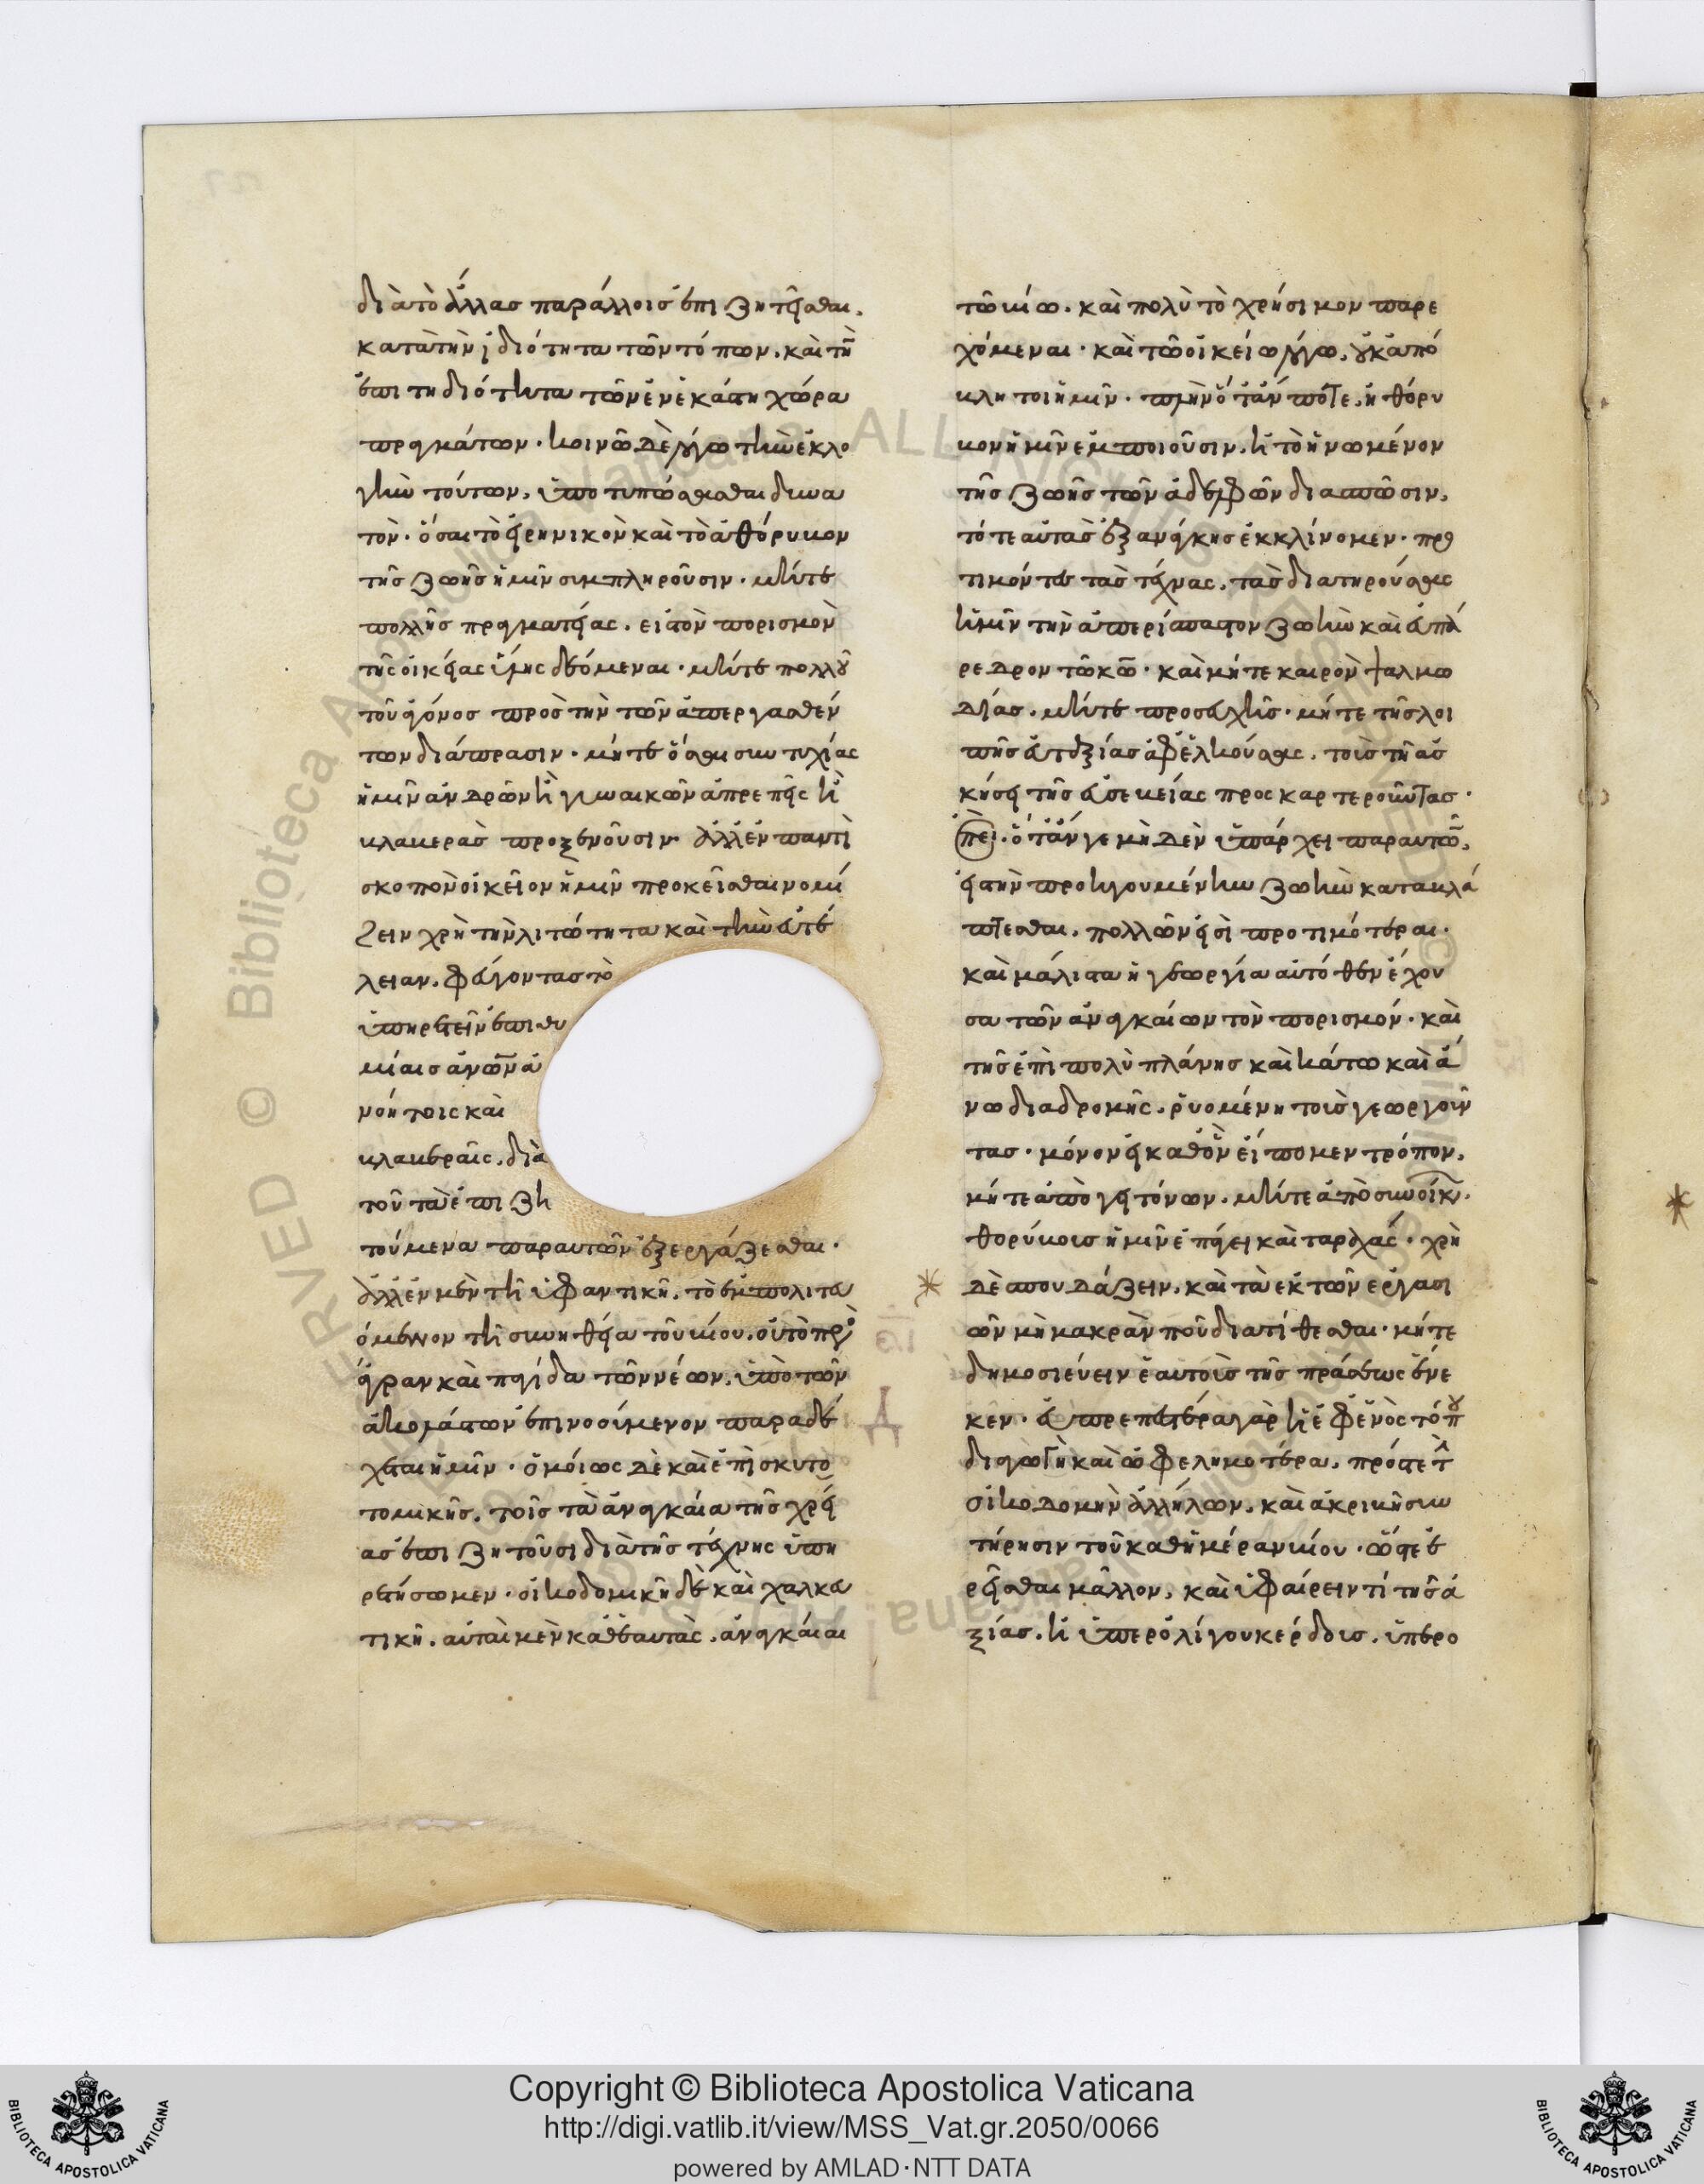 διὰ τὸ ἄλλας παρ' ἄλλοις ἐπιζητεῖσθαι,
κατὰ τὴν ἰδιότητα τῶν τόπων, καὶ τὴν
ἐπιτηδιότητα τῶν ἐν ἑκάστη χώρα
πραγμάτων. κοινῶ δὲ λόγω τὴν ἐκλο
γὴν τούτων, ὑποτυπώσασθαι δυνα
τὸν. ὅσαι τὸ εἰρηνικὸν καὶ τὸ ἀθόρυβον
τῆς ζωῆς ἡμῖν συμπληροῦσιν. μήτε
πολλῆς πραγματείας, εἰς τὸν πορισμὸν
τῆς οἰκείας ὕλης δεόμεναι. μήτε πολλοῦ
τοῦ ἀγῶνος πρὸς τὴν τῶν ἀπεργασθέν
των διάπρασιν. μήτε ὅσαι συντυχίας
ἡμῖν ἀνδρῶν ἢ γυναικῶν ἀπρεπεῖς ἢ
βλαβερὰς προξενοῦσιν. ἀλλ' ἐν παντὶ
σκοπὸν οἰκεῖον ἡμῖν προκεῖσθαι νομί
ζειν χρὴ τὴν λιτότητα καὶ τὴν εὐτέ
λειαν. φεύγοντας τὸ
ὑπηρετεῖν ἐπιθυ
μίαις ἀνῶν ἀ
νοήτοις καὶ
βλαβεραῖς, διὰ
τοῦ τὰ ἐπιζη
τούμενα παρ' αὐτῶν ἐξεργάζεσθαι.
ἀλλ' ἐν μὲν τῆ ὑφαντικῆ, τὸ ἐμπολιτευ
όμενον τῆ συνηθεία τοῦ βίου, οὐ τὸ πρὸς
ἄγραν καὶ παγίδα τῶν νέων, ὑπὸ τῶν
ἀκολάστων ἐπινοούμενον παραδέ
χεται ἡμῖν. ὁμοίως δὲ καὶ ἐπὶ σκυτο
τομικῆς, τοῖς τὰ ἀναγκαῖα τῆς χρεί
ας ἐπιζητοῦσι διὰ τῆς τέχνης ὑπη
ρετήσωμεν. οἰκοδομικὴ δὲ καὶ χαλκευ
τικὴ, αὗται μὲν καθ' ἑαυτὰς, ἀναγκαῖαι
τῶ βίω. καὶ πολὺ τὸ χρήσιμον παρε
χόμεναι. καὶ τῶ οἰκείω λόγω, οὐκ ἀπό
βλητοι ἡμῖν. πλὴν ὅταν ποτε, ἢ θόρυ
βον ἡμῖν ἐμποιοῦσιν, ἢ τὸ ἡνωμένον
τῆς ζωῆς τῶν ἀδελφῶν διασπῶσιν,
τότε αὐτὰς ἐξ ἀνάγκης ἐκκλίνομεν. προ
τιμόντες τὰς τέχνας, τὰς διατηρούσας
ἡμῖν τὴν ἀπερίσπαστον ζωὴν καὶ εὐπά
ρεδρον τῶ κῶ. καὶ μήτε καιρὸν ψαλμω
δίας, μήτε προσευχῆς. μήτε τῆς λοι
πῆς εὐταξίας ἀφελκούσας, τοὺς τῆ ἀσ
κήσει τῆς εὐσεβείας προσκαρτεροῦντας.
ἐπεὶ. ὅτάν γε μὴδὲν ὑπάρχει παρ' αὐτῶν,
εἰς τὴν προηγουμένην ζωὴν καταβλά
πτεσθαι, πολλῶν εἰσὶ προτιμότεραι.
καὶ μάλιστα ἡ γεωργία αὐτόθεν ἔχου
σα τῶν ἀναγκαίων τὸν πορισμόν. καὶ
τῆς ἐπὶ πολὺ πλάνης καὶ κάτω καὶ ἄ
νω διαδρομῆς, ῥυομένη τοὺς γεωργοῦν
τας. μόνον εἰ καθ' ὃν εἴπομεν τρόπον,
μήτε ἀπὸ γειτόνων, μήτε ἀπὸ συνοίκ.
θορύβους ἡμῖν ἐπάγει καὶ ταραχάς. χρὴ
δὲ σπουδάζειν, καὶ τὰ ἐκ τῶν ἐργασι
ῶν μὴ μακρὰν ποῦ διατίθεσθαι. μήτε
δημοσιεύειν ἑαυτοὺς τῆς πράσεως ἕνε
κεν. εὐπρεπεστέρα γὰρ ἡ ἐφ' ἑνὸς τόπου
διαγωγὴ καὶ ὠφελημοτέρα, πρός τε τ
οἰκοδομὴν ἀλλήλων, καὶ ἀκριβῆ συν
τήρησιν τοῦ καθ' ἡμέραν βίου. ὥστε αἱ
ρεῖσθαι μᾶλλον, καὶ ὑφαίρειν τί τῆς ἀ
ξίας, ἢ ὑπὲρ ὀλίγου κέρδους, ὑπερο
Copyright © Biblioteca Apostolica Vaticana
http://digi.vatlib.it/view/MSS_Vat.gr.2050/0066
powered by AMLAD·NTT DATA